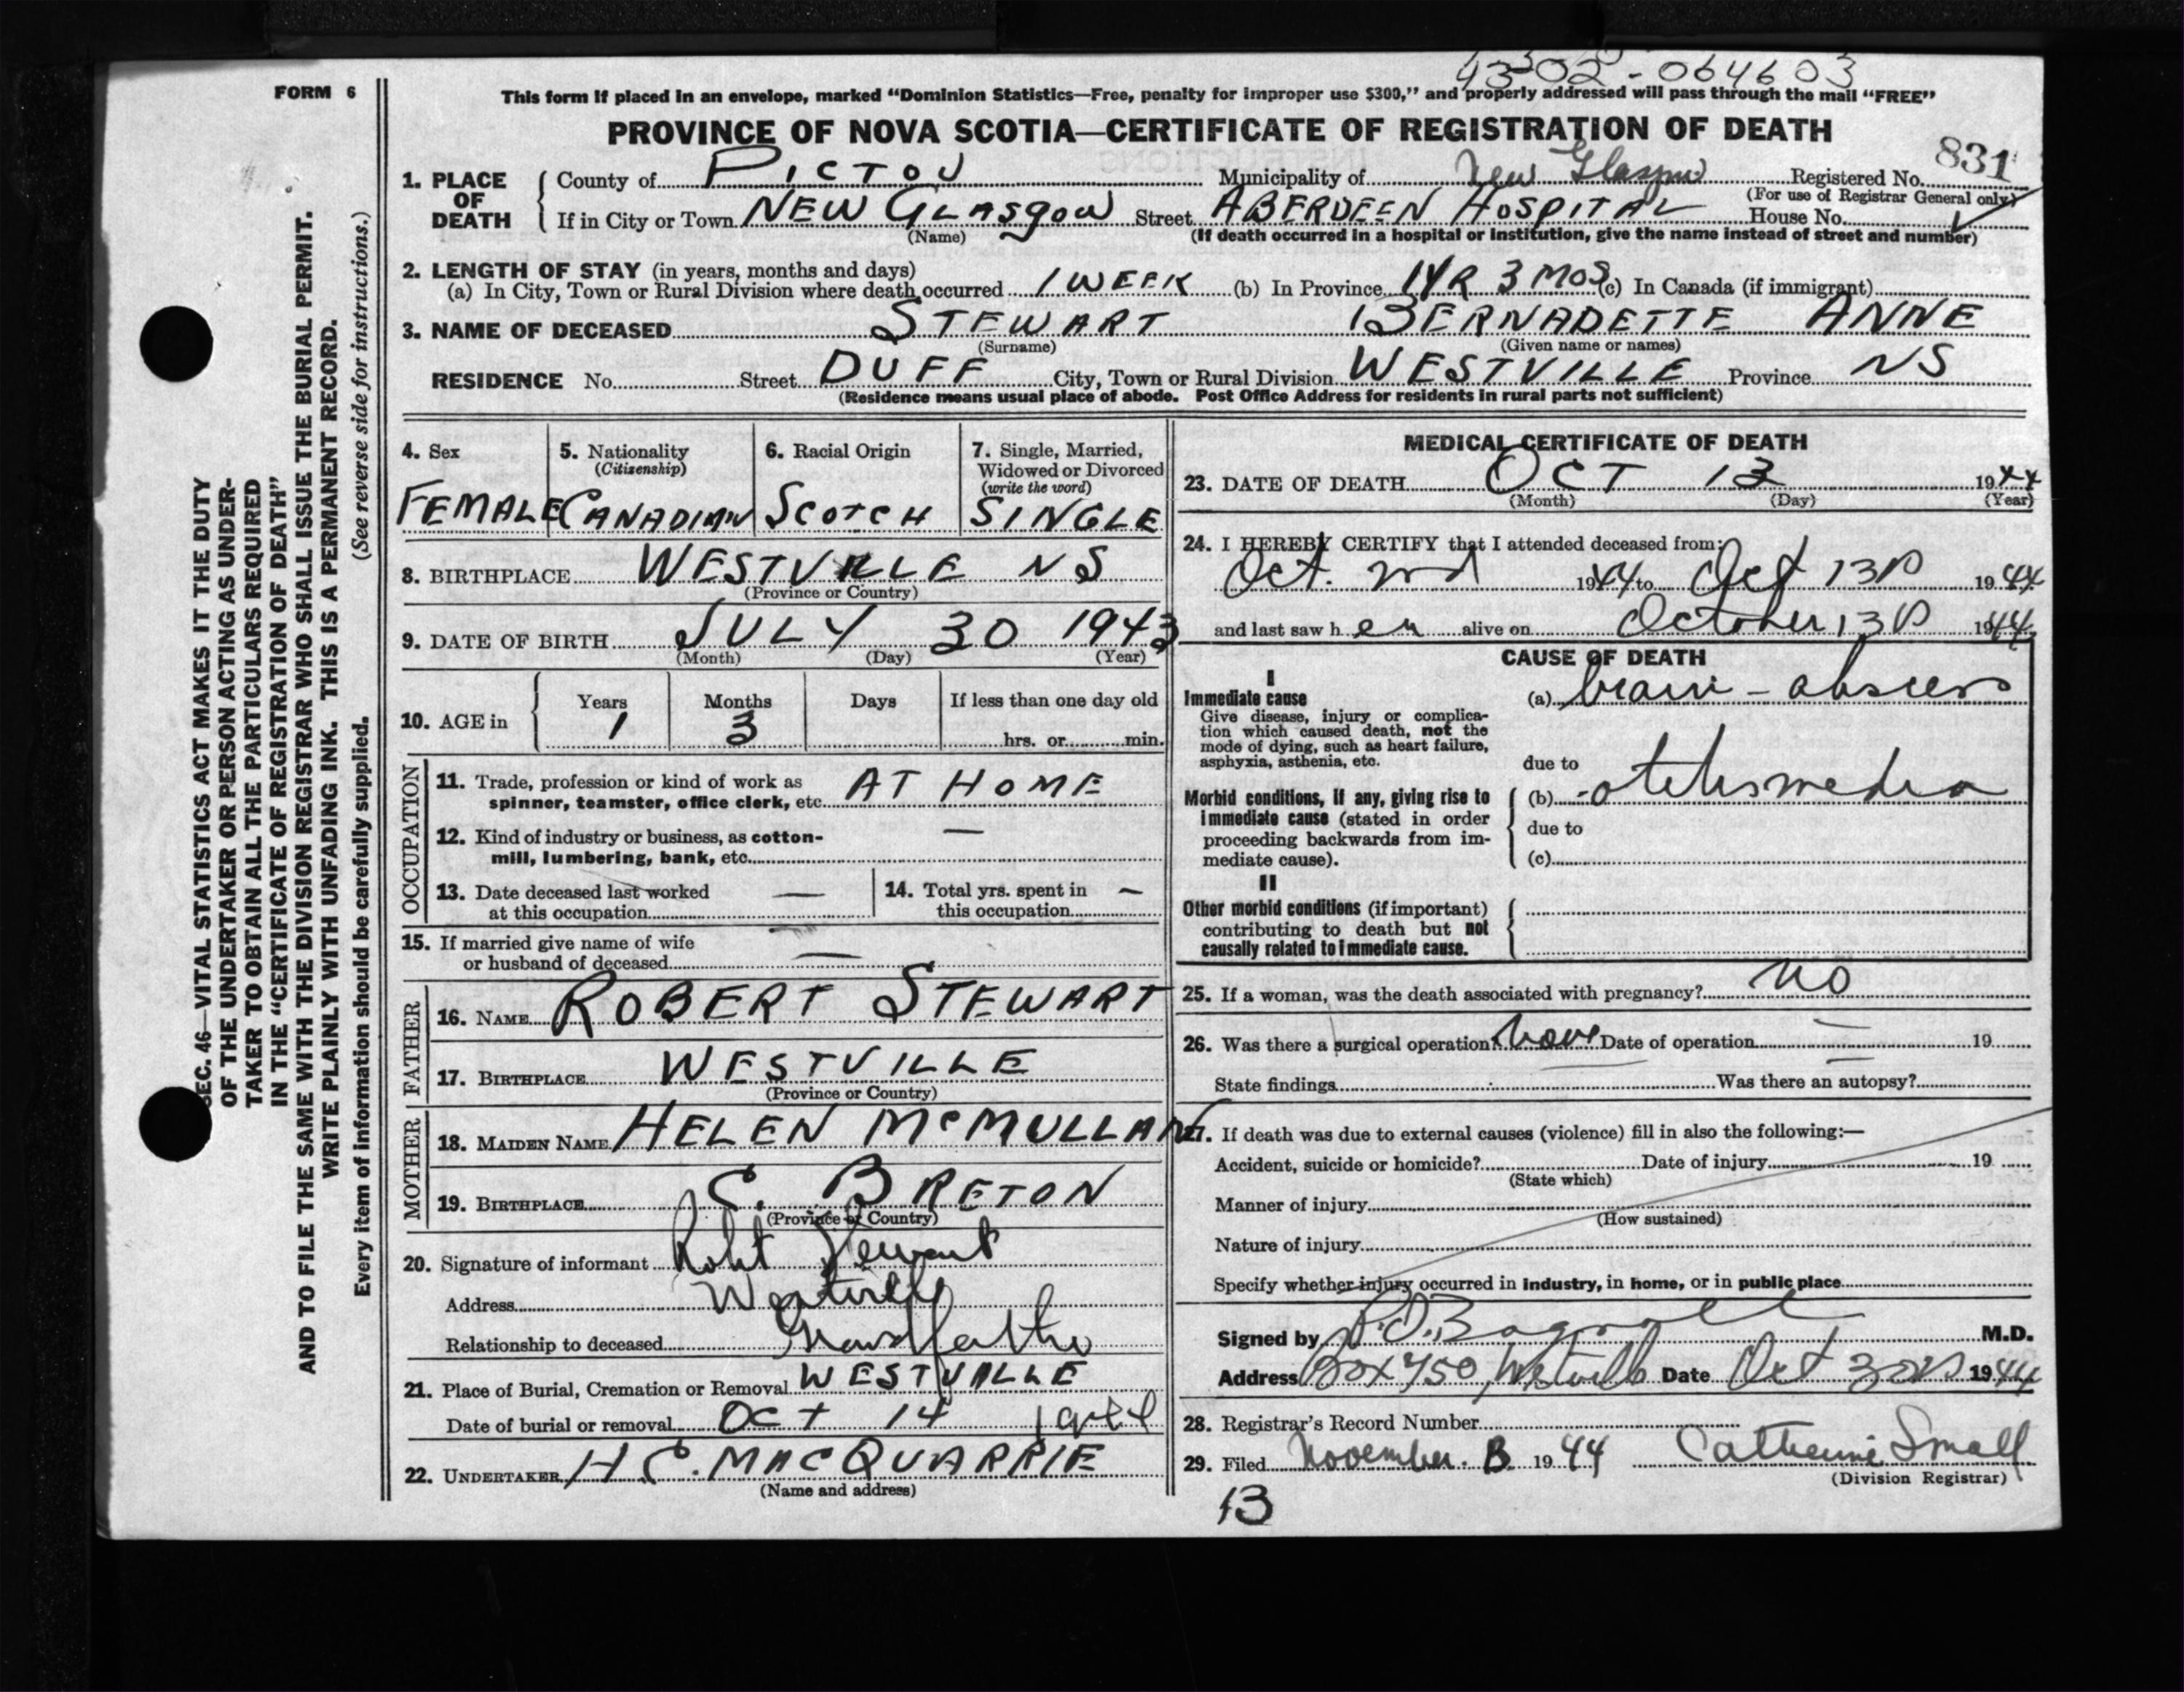 43302-064603
FORM 6
This form if placed in an envelope, marked "Dominion Statistics—Free, penalty for improper use $300," and properly addressed will pass through the mail "FREE"
PROVINCE OF NOVA SCOTIA—CERTIFICATE OF REGISTRATION OF DEATH
831
1. PLACE OF DEATH
County of PICTOU Municipality of New Glasgow Registered No.
(For use of Registrar General only)
If in City or Town NEW GLASGOW Street ABERDEEN HOSPITAL House No.
(Name) (If death occurred in a hospital or institution, give the name instead of street and number)
2. LENGTH OF STAY (in years, months and days)
(a) In City, Town or Rural Division where death occurred 1 WEEK (b) In Province 1 YR 3 MOS (c) In Canada (if immigrant)
3. NAME OF DECEASED STEWART BERNADETTE ANNE
(Surname) (Given name or names)
RESIDENCE No. Street DUFF City, Town or Rural Division WESTVILLE Province NS
(Residence means usual place of abode. Post Office Address for residents in rural parts not sufficient)
4. Sex
FEMALE
5. Nationality
(Citizenship)
CANADIAN
6. Racial Origin
SCOTCH
7. Single, Married,
Widowed or Divorced
(write the word)
SINGLE
8. BIRTHPLACE WESTVILLE NS
(Province or Country)
9. DATE OF BIRTH JULY 30 1943
(Month) (Day) (Year)
10. AGE in
Years Months Days If less than one day old
1 3 hrs. or min.
OCCUPATION
11. Trade, profession or kind of work as
spinner, teamster, office clerk, etc. AT HOME
12. Kind of industry or business, as cotton-
mill, lumbering, bank, etc. —
13. Date deceased last worked
at this occupation —
14. Total yrs. spent in
this occupation —
15. If married give name of wife
or husband of deceased —
FATHER
16. NAME ROBERT STEWART
17. BIRTHPLACE WESTVILLE
(Province or Country)
MOTHER
18. MAIDEN NAME HELEN McMULLAN
19. BIRTHPLACE C. BRETON
(Province or Country)
20. Signature of informant Robt Stewart
Address Westville
Relationship to deceased Grandfather
21. Place of Burial, Cremation or Removal WESTVILLE
Date of burial or removal OCT 14 1944
22. UNDERTAKER H C. MACQUARRIE
(Name and address)
MEDICAL CERTIFICATE OF DEATH
23. DATE OF DEATH OCT 13 1944
(Month) (Day) (Year)
24. I HEREBY CERTIFY that I attended deceased from:
Oct. 2nd 1944 to Oct 13 1944
and last saw her alive on October 13 1944
CAUSE OF DEATH
I
Immediate cause
Give disease, injury or complica-
tion which caused death, not the
mode of dying, such as heart failure,
asphyxia, asthenia, etc.
(a) brain - abscess
due to
Morbid conditions, if any, giving rise to
immediate cause (stated in order
proceeding backwards from im-
mediate cause).
(b) otitis media
due to
(c)
II
Other morbid conditions (if important)
contributing to death but not
causally related to immediate cause.
25. If a woman, was the death associated with pregnancy? no
26. Was there a surgical operation? None Date of operation — 19
State findings Was there an autopsy?
27. If death was due to external causes (violence) fill in also the following:—
Accident, suicide or homicide? Date of injury 19
(State which)
Manner of injury
(How sustained)
Nature of injury
Specify whether injury occurred in industry, in home, or in public place
Signed by Bagnall M.D.
Address Box 750, Westville Date Oct 1944
28. Registrar's Record Number
29. Filed November 13 1944 Catherine Small
(Division Registrar)
13
SEC. 46—VITAL STATISTICS ACT MAKES IT THE DUTY
OF THE UNDERTAKER OR PERSON ACTING AS UNDER-
TAKER TO OBTAIN ALL THE PARTICULARS REQUIRED
IN THE "CERTIFICATE OF REGISTRATION OF DEATH"
AND TO FILE THE SAME WITH THE DIVISION REGISTRAR WHO SHALL ISSUE THE BURIAL PERMIT.
WRITE PLAINLY WITH UNFADING INK. THIS IS A PERMANENT RECORD.
Every item of information should be carefully supplied. (See reverse side for instructions.)